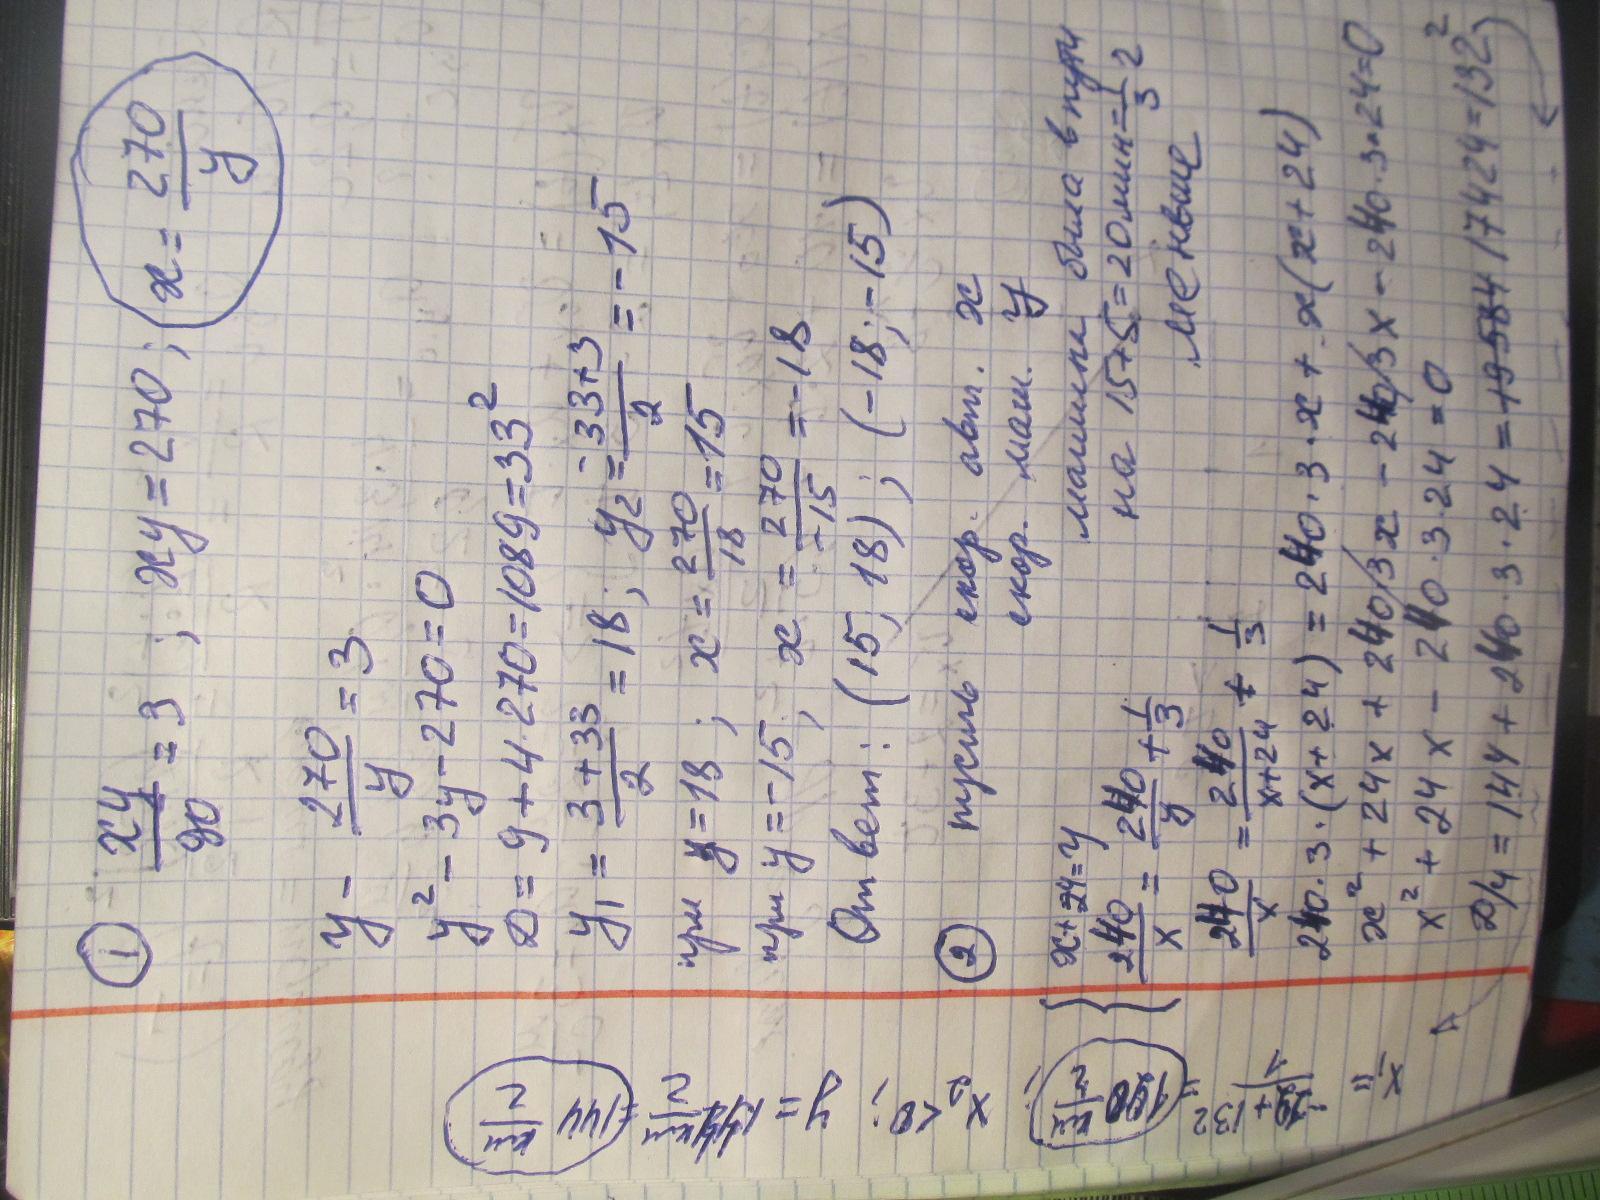 ① xy/90 = 3 ; xy = 270 ; x = 270/y
y - 270/y = 3
y² - 3y - 270 = 0
D = 9 + 4·270 = 1089 = 33²
y₁ = (3+33)/2 = 18 ; y₂ = (-33+3)/2 = -15
при y = 18 ; x = 270/18 = 15
при y = -15 ; x = 270/-15 = -18
Ответ : (15; 18) ; (-18; -15)
② пусть скор. авт. x
скор. маш. y
{ x+24=y
240/x = 240/y + 1/3
машина была в пути
на 15+5=20мин=1/3 г
меньше
240/x = 240/(x+24) + 1/3
240·3·(x+24) = 240·3·x + x(x+24)
x² + 24x + 240/3x - 240/3x - 240·3·24=0
x² + 24x - 240·3·24 = 0
D/4 = 144 + 240·3·24 = 19584 17424=132²
x₁ =
+132
/1
=
км/г
;
x₂ <0;
y =
км/г
=144 км/г